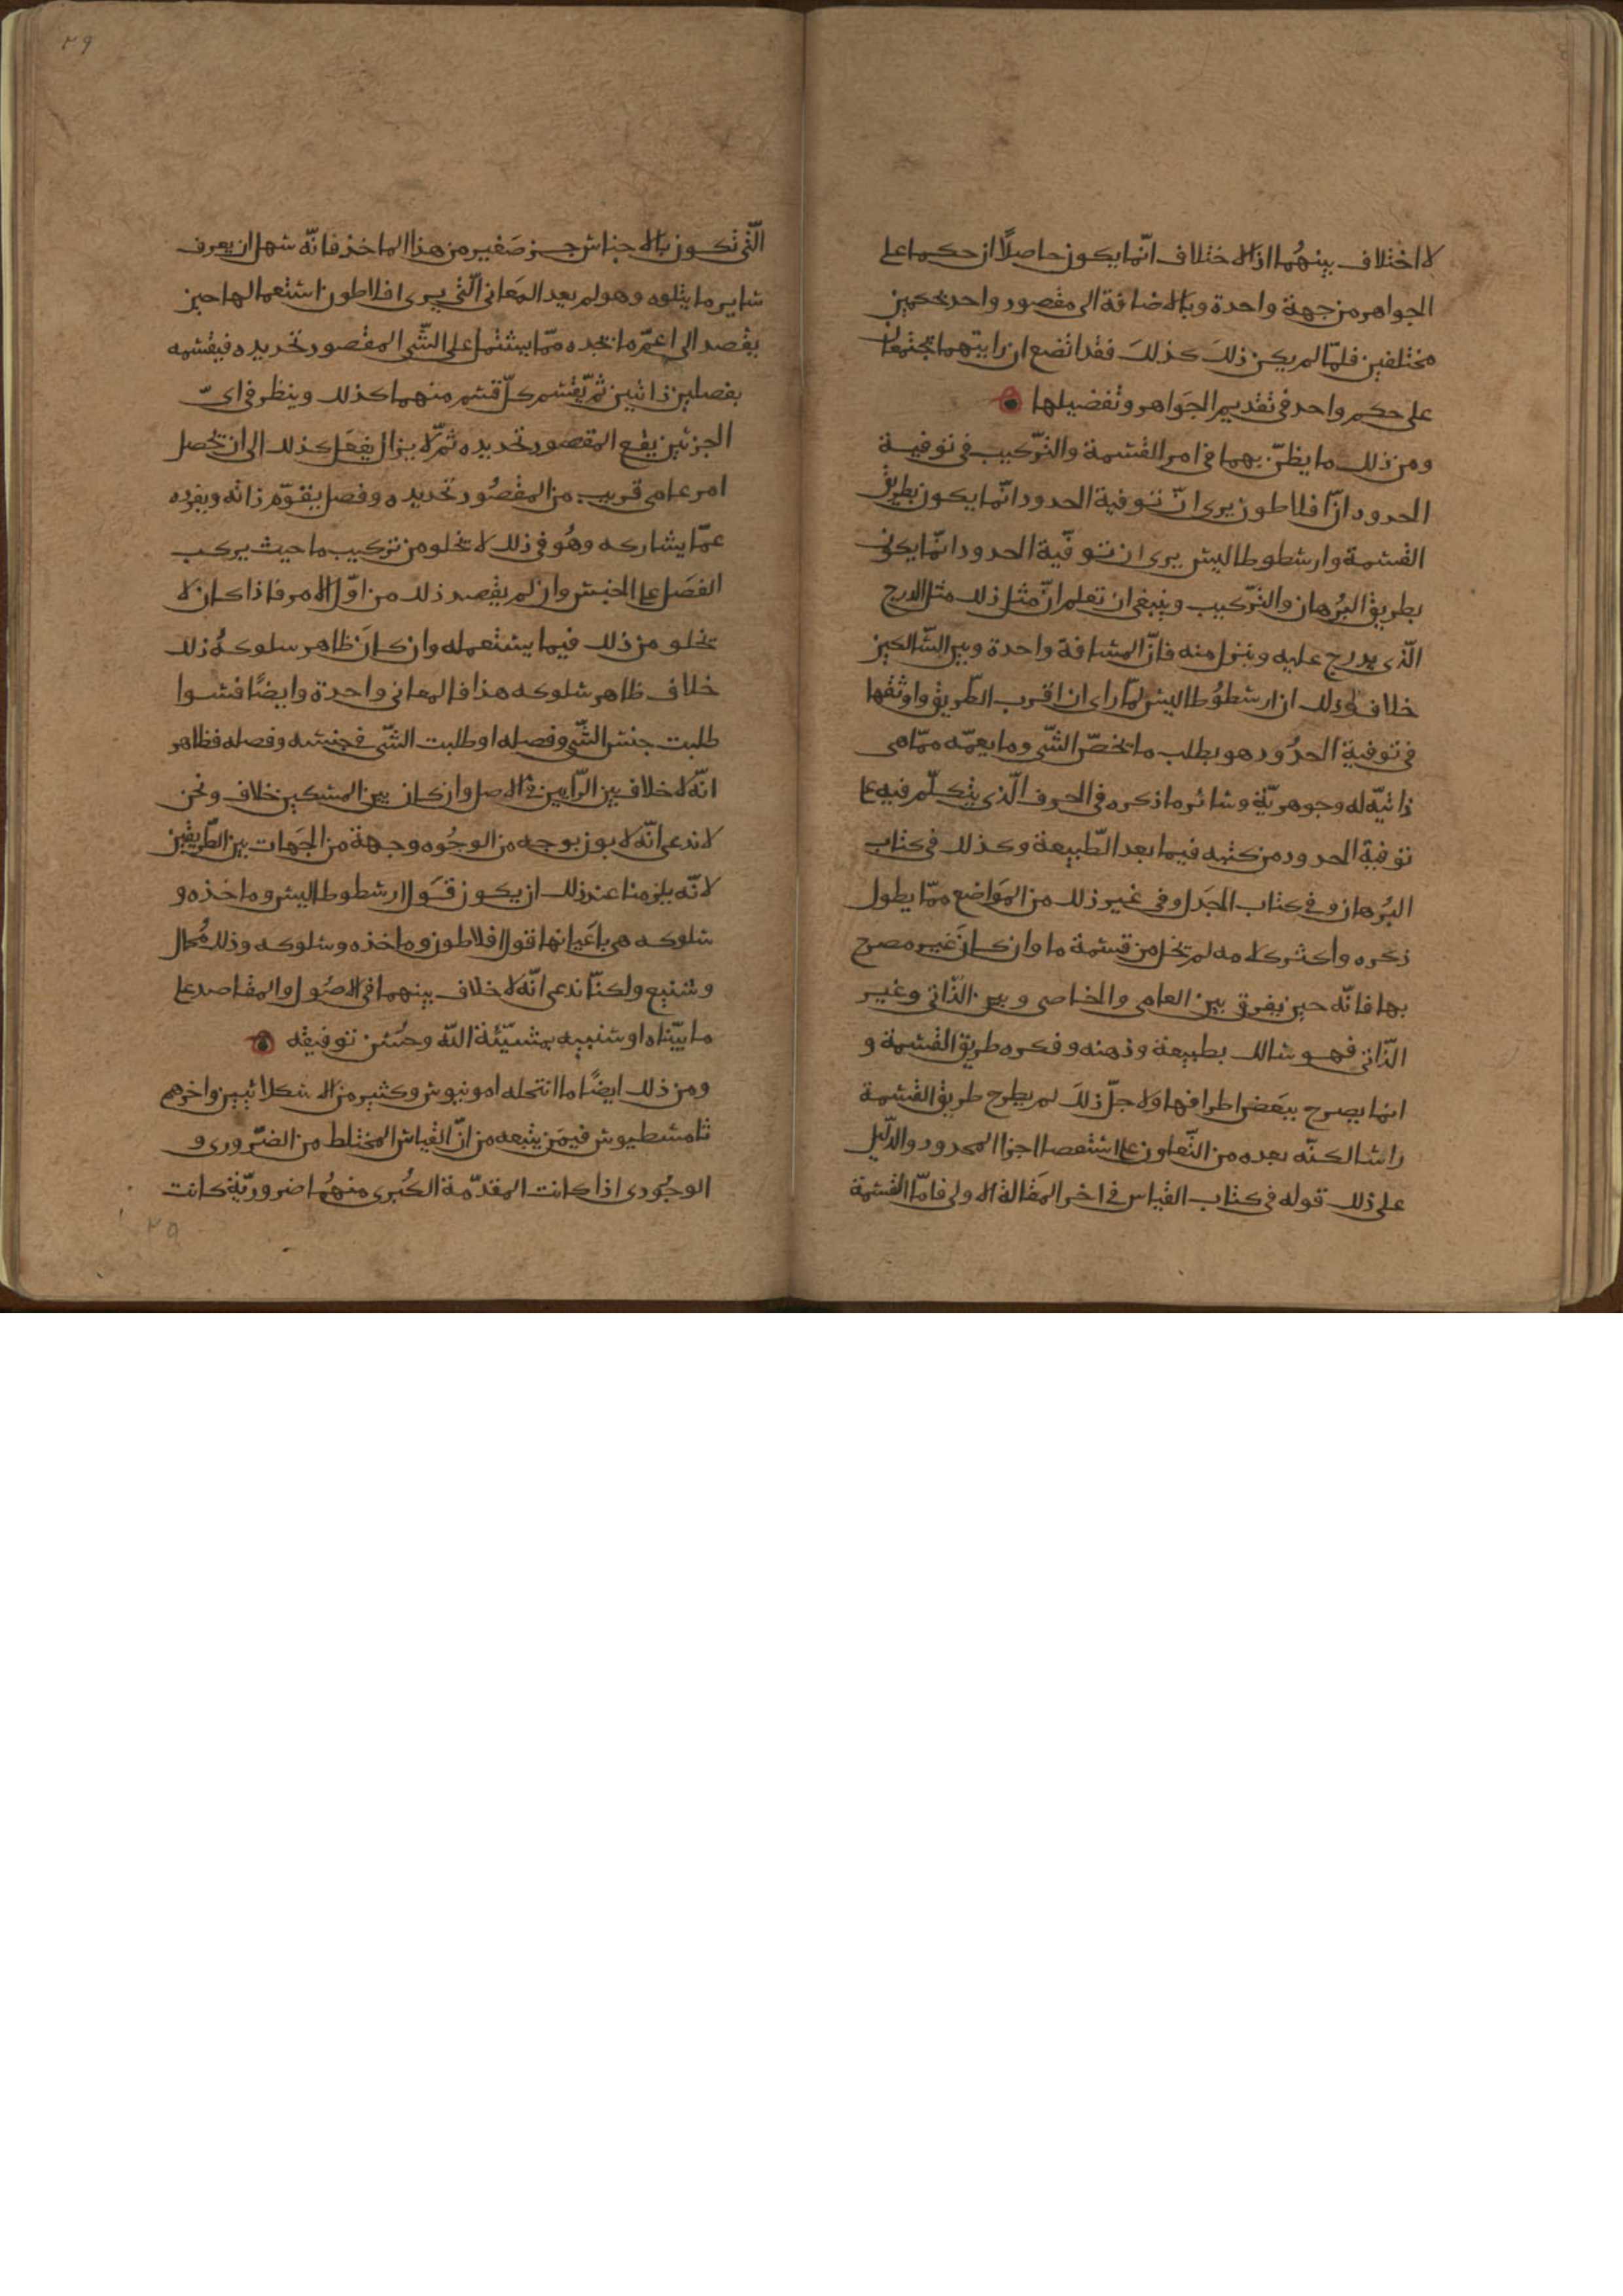 لا اختلاف بينهُما اذ الاختلاف انّما يكون حاصلًا ان حكما على
الجواهر من جهة واحدة وبالاضافة الى مقصود واحد بحكمين
مختلفين فلمّا لم يكن ذلك كذلك فقد اتضح ان راييهما يجتمعان
على حكم واحد في تقديم الجواهر وتفضيلها
ومن ذلك ما يظنّ بهما في امر القسمة والتّركيب في توفية
الحدود انّ افلاطون يرى انّ توفية الحدود انّما يكون بطريق
القسمة وارسطوطاليس يرى ان توفّية الحدود انّما يكون
بطريق البُرهان والتّركيب وينبغي ان تعلم انّ مثل ذلك مثل الدرج
الّذى يدرج عليه وينزل منه فانّ المسافة واحدة وبين السّالكين
خلاف وذلك ان ارسطوُطاليس لمّا راى ان اقرب الطّريق واوثقها
في توفية الحدُود هو بطلب ما يخصّ الشّى وما يعمّه ممّا هى
ذاتيّه له وجوهريّة وسائر ما ذكره في الحرف الّذى يتكلّم فيه على
توفية الحدود من كتبه فيما بعد الطّبيعة وكذلك في كتاب
البُرهان وفي كتاب الجَدل وفي غير ذلك من المَواضع ممّا يطول
ذكره واكثر كلامه لم تخل من قسمة ما وان كانَ غير مصرح
بها فانّه حين يفرق بين العامى والخاصى وبين الذّاتى وغير
الذّاتى فهو سالك بطبيعة وذهنه وفكره طريق القسمة و
انما يصرح ببَعض اطرافها ولاجلّ ذلكَ لم يطرح طريق القسمة
راسا لكنّه بعده من التّعاون على استقصا اجزا المحدود والدّليل
على ذلك قوله في كتاب القياس في اخر المَقالة الاولى فامّا القسمة
٢٩
الّتى تكون بالاجناس جز صَغير من هذا الماخذ فانّه سهل ان يعرف
ساير ما يتلوه وهو لم يعد المَعانى الّتى يرى افلاطون استعمالها حين
يقصد الى اعمّ ما تجده ممّا يشتمل على الشّى المقصود تحديده فيقسمه
بفصلين ذاتيين ثمّ يقسم كلّ قسم منهما كذلك وينظر في اىّ
الجزئين يقع المقصود تحديده ثمّ لا يزال يفعَل كذلك الى ان يحصل
امر عامى قريب من المقصُود تحديده وفصل يقوّم ذاته ويفرده
عمّا يشاركه وهُو في ذلك لا تخلو من تركيب ما حيث يركب
الفصَل على الجنس وان لم يقصد ذلك من اوّل الامر فاذا كان لا
تخلو من ذلك فيما يستعمله وان كانَ ظاهر سلوكهُ ذلك
خلاف ظاهر سلوكه هذا فالمعانى واحدة وايضًا فسوا
طلبت جنس الشّى وفصله او طلبت الشّى في جنسه وفصله فظاهر
انّه لا خلاف بين الرّايين في الاصل وان كان بين المسلكين خلاف ونحن
لا ندعى انّه لا بون بوجه من الوجُوه وجهة من الجَهات بين الطّريقين
لانّه يلزمنا عند ذلك ان يكون قَول ارسطوطاليس وماخذه و
سلوكه هى باعَيانها قول افلاطون وماخذه وسلوكه وذلك مُحال
وشنيع ولكنّا ندعى انّه لا خلاف بينهما في الاصُول والمقاصد على
ما بيّناه او سنبينه بمشيّئة اللّه وحُسن توفيقه
ومن ذلك ايضًا ما انتحله امونيوس وكثير من الاسكلائيين واخرهم
ثامسطيوس فيمَن يتبعه من انّ القياس المختلط من الضّرورى و
الوجُودى اذا كانت المقدّمة الكُبرى منهُما ضروريّة كانت